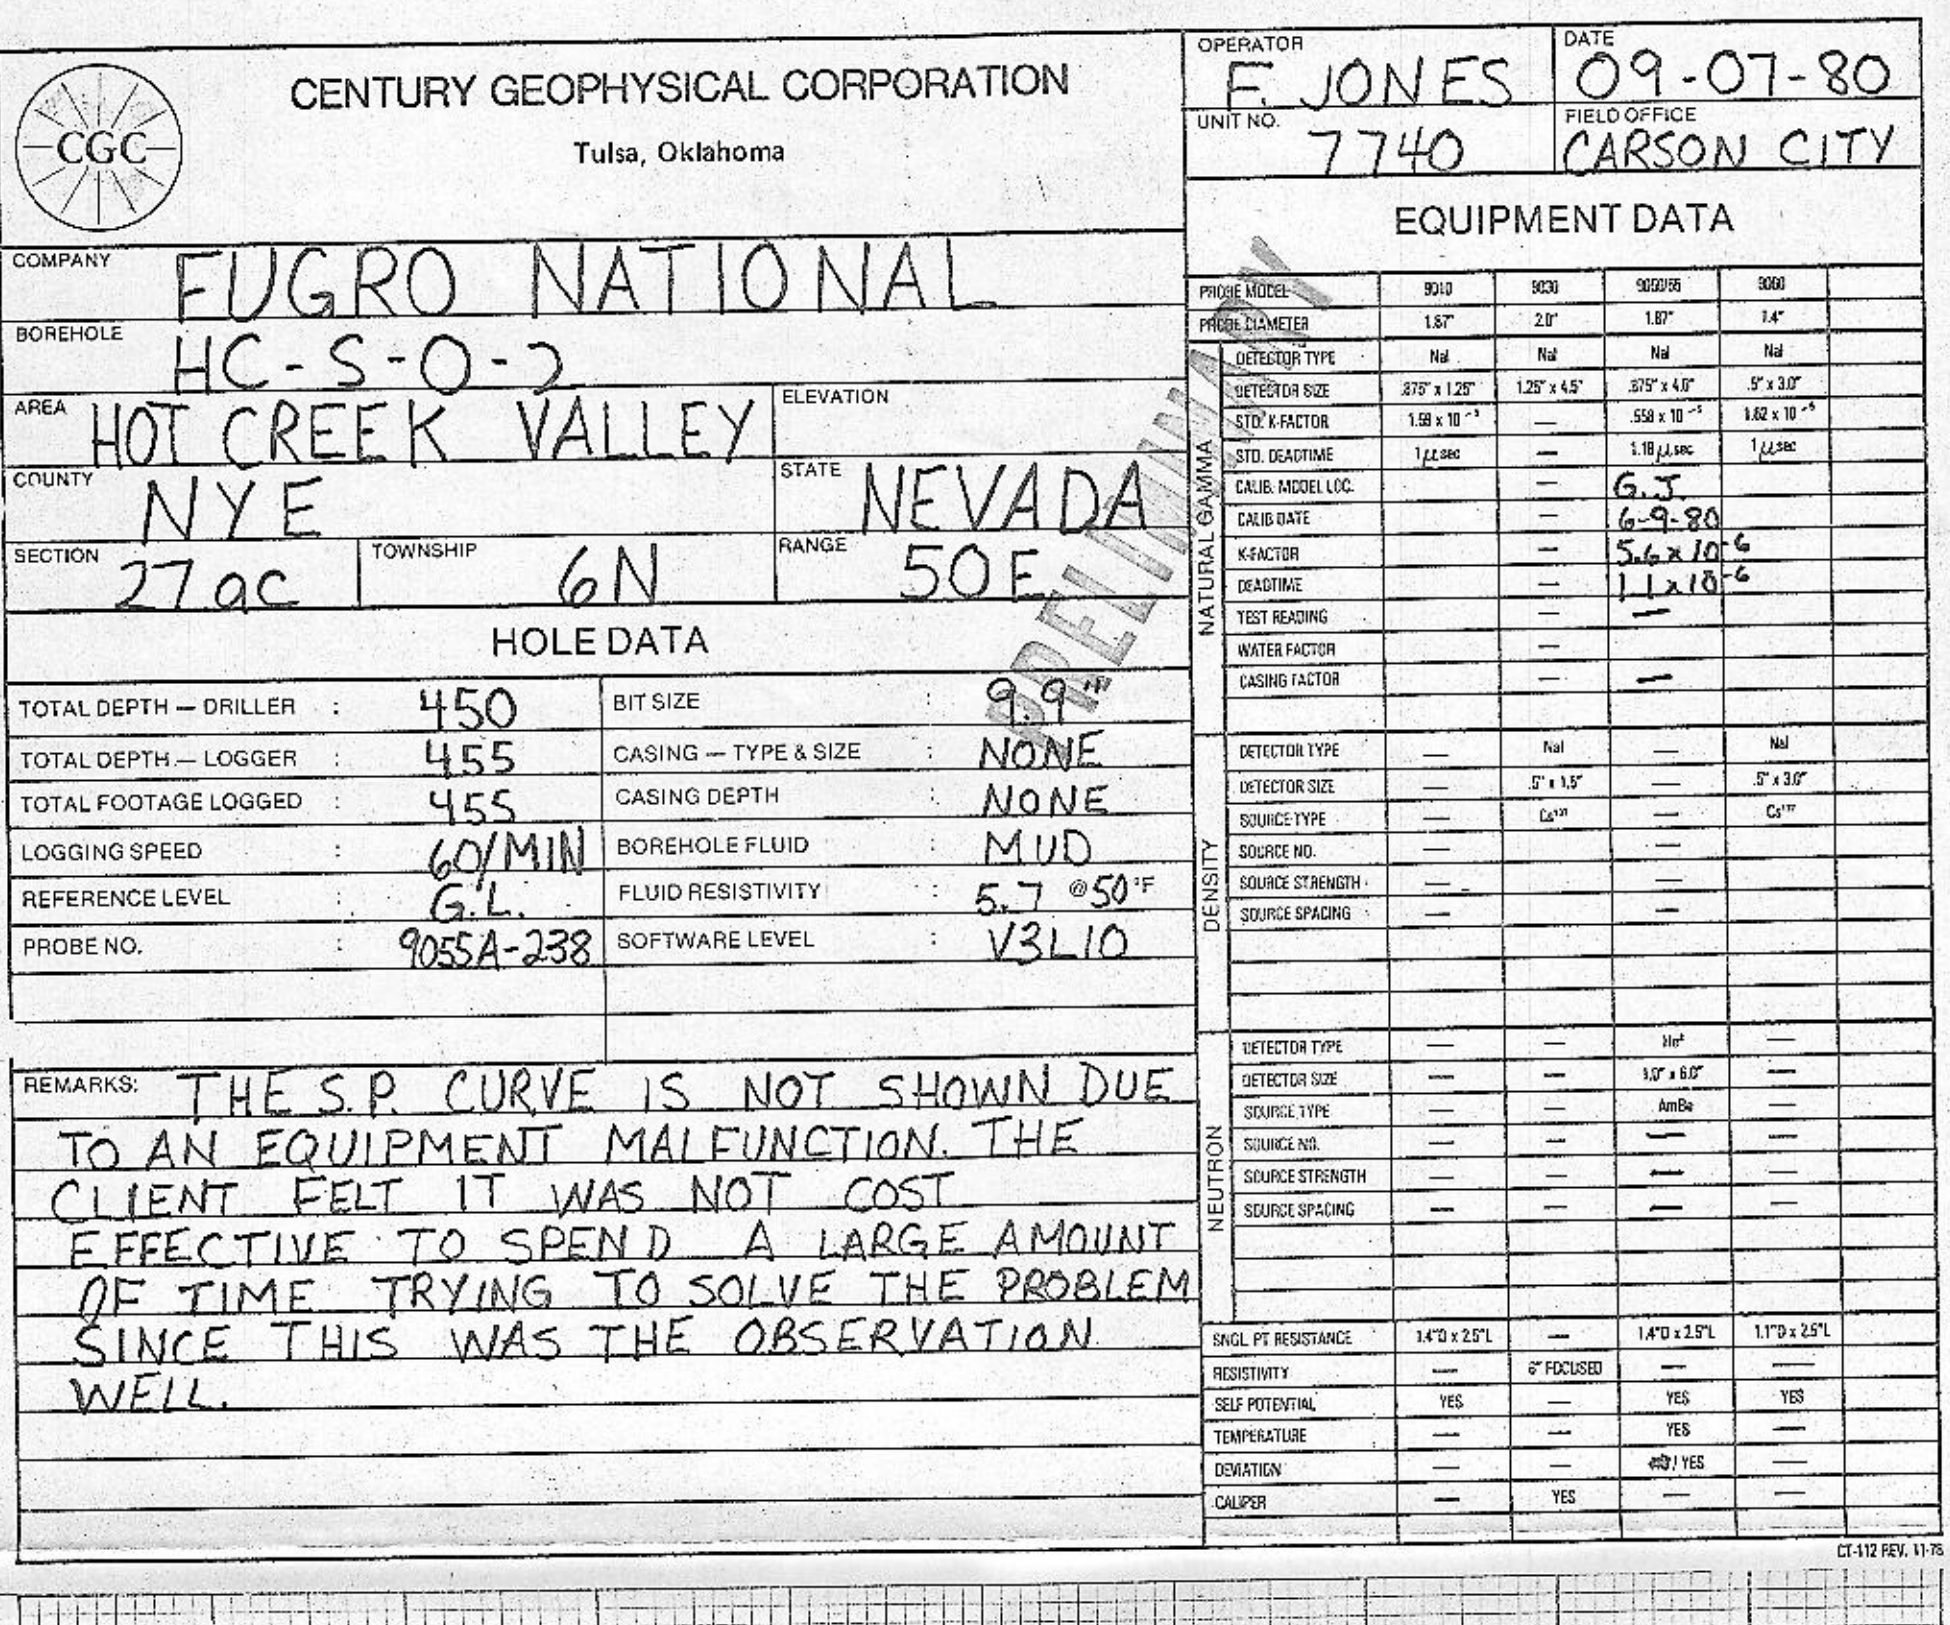 CGC
CENTURY GEOPHYSICAL CORPORATION
Tulsa, Oklahoma
OPERATOR F. JONES
DATE 09-07-80
UNIT NO. 7740
FIELD OFFICE CARSON CITY
COMPANY FUGRO NATIONAL
BOREHOLE HC-S-O-2
AREA HOT CREEK VALLEY
ELEVATION
COUNTY NYE
STATE NEVADA
SECTION 27ac
TOWNSHIP 6N
RANGE 50E
PRELIMINARY
HOLE DATA
TOTAL DEPTH — DRILLER : 450
BIT SIZE : 9.9"
TOTAL DEPTH — LOGGER : 455
CASING — TYPE & SIZE : NONE
TOTAL FOOTAGE LOGGED : 455
CASING DEPTH : NONE
LOGGING SPEED : 60/MIN
BOREHOLE FLUID : MUD
REFERENCE LEVEL : G.L.
FLUID RESISTIVITY : 5.7 @50°F
PROBE NO. : 9055A-238
SOFTWARE LEVEL : V3L10
REMARKS: THE S.P. CURVE IS NOT SHOWN DUE
TO AN EQUIPMENT MALFUNCTION. THE
CLIENT FELT IT WAS NOT COST
EFFECTIVE TO SPEND A LARGE AMOUNT
OF TIME TRYING TO SOLVE THE PROBLEM
SINCE THIS WAS THE OBSERVATION
WELL.
EQUIPMENT DATA
PROBE MODEL 9010 9030 9050/55 9060
PROBE DIAMETER 1.87" 2.0" 1.87" 1.4"
NATURAL GAMMA
DETECTOR TYPE NaI NaI NaI NaI
DETECTOR SIZE .875" x 1.25" 1.25" x 4.5" .875" x 4.0" .5" x 3.0"
STD. K-FACTOR 1.59 x 10⁻⁵ — .558 x 10⁻⁵ 1.62 x 10⁻⁵
STD. DEADTIME 1 μsec — 1.18 μsec 1 μsec
CALIB. MODEL LOC. — G.J.
CALIB DATE — 6-9-80
K-FACTOR — 5.6 x 10⁻⁶
DEADTIME — 1.1 x 10⁻⁶
TEST READING — —
WATER FACTOR —
CASING FACTOR — —
DENSITY
DETECTOR TYPE — NaI — NaI
DETECTOR SIZE — .5" x 1.5" — .5" x 3.0"
SOURCE TYPE — Cs¹³⁷ — Cs¹³⁷
SOURCE NO. — —
SOURCE STRENGTH — —
SOURCE SPACING — —
NEUTRON
DETECTOR TYPE — — —
DETECTOR SIZE — — 1.0" x 6.0" —
SOURCE TYPE — — AmBe —
SOURCE NO. — — — —
SOURCE STRENGTH — — — —
SOURCE SPACING — — — —
SNGL PT RESISTANCE 1.4"D x 2.5"L — 1.4"D x 2.5"L 1.1"D x 2.5"L
RESISTIVITY — 6" FOCUSED — —
SELF POTENTIAL YES — YES YES
TEMPERATURE — — YES —
DEVIATION — — / YES —
CALIPER — YES — —
CT-112 REV. 11-78